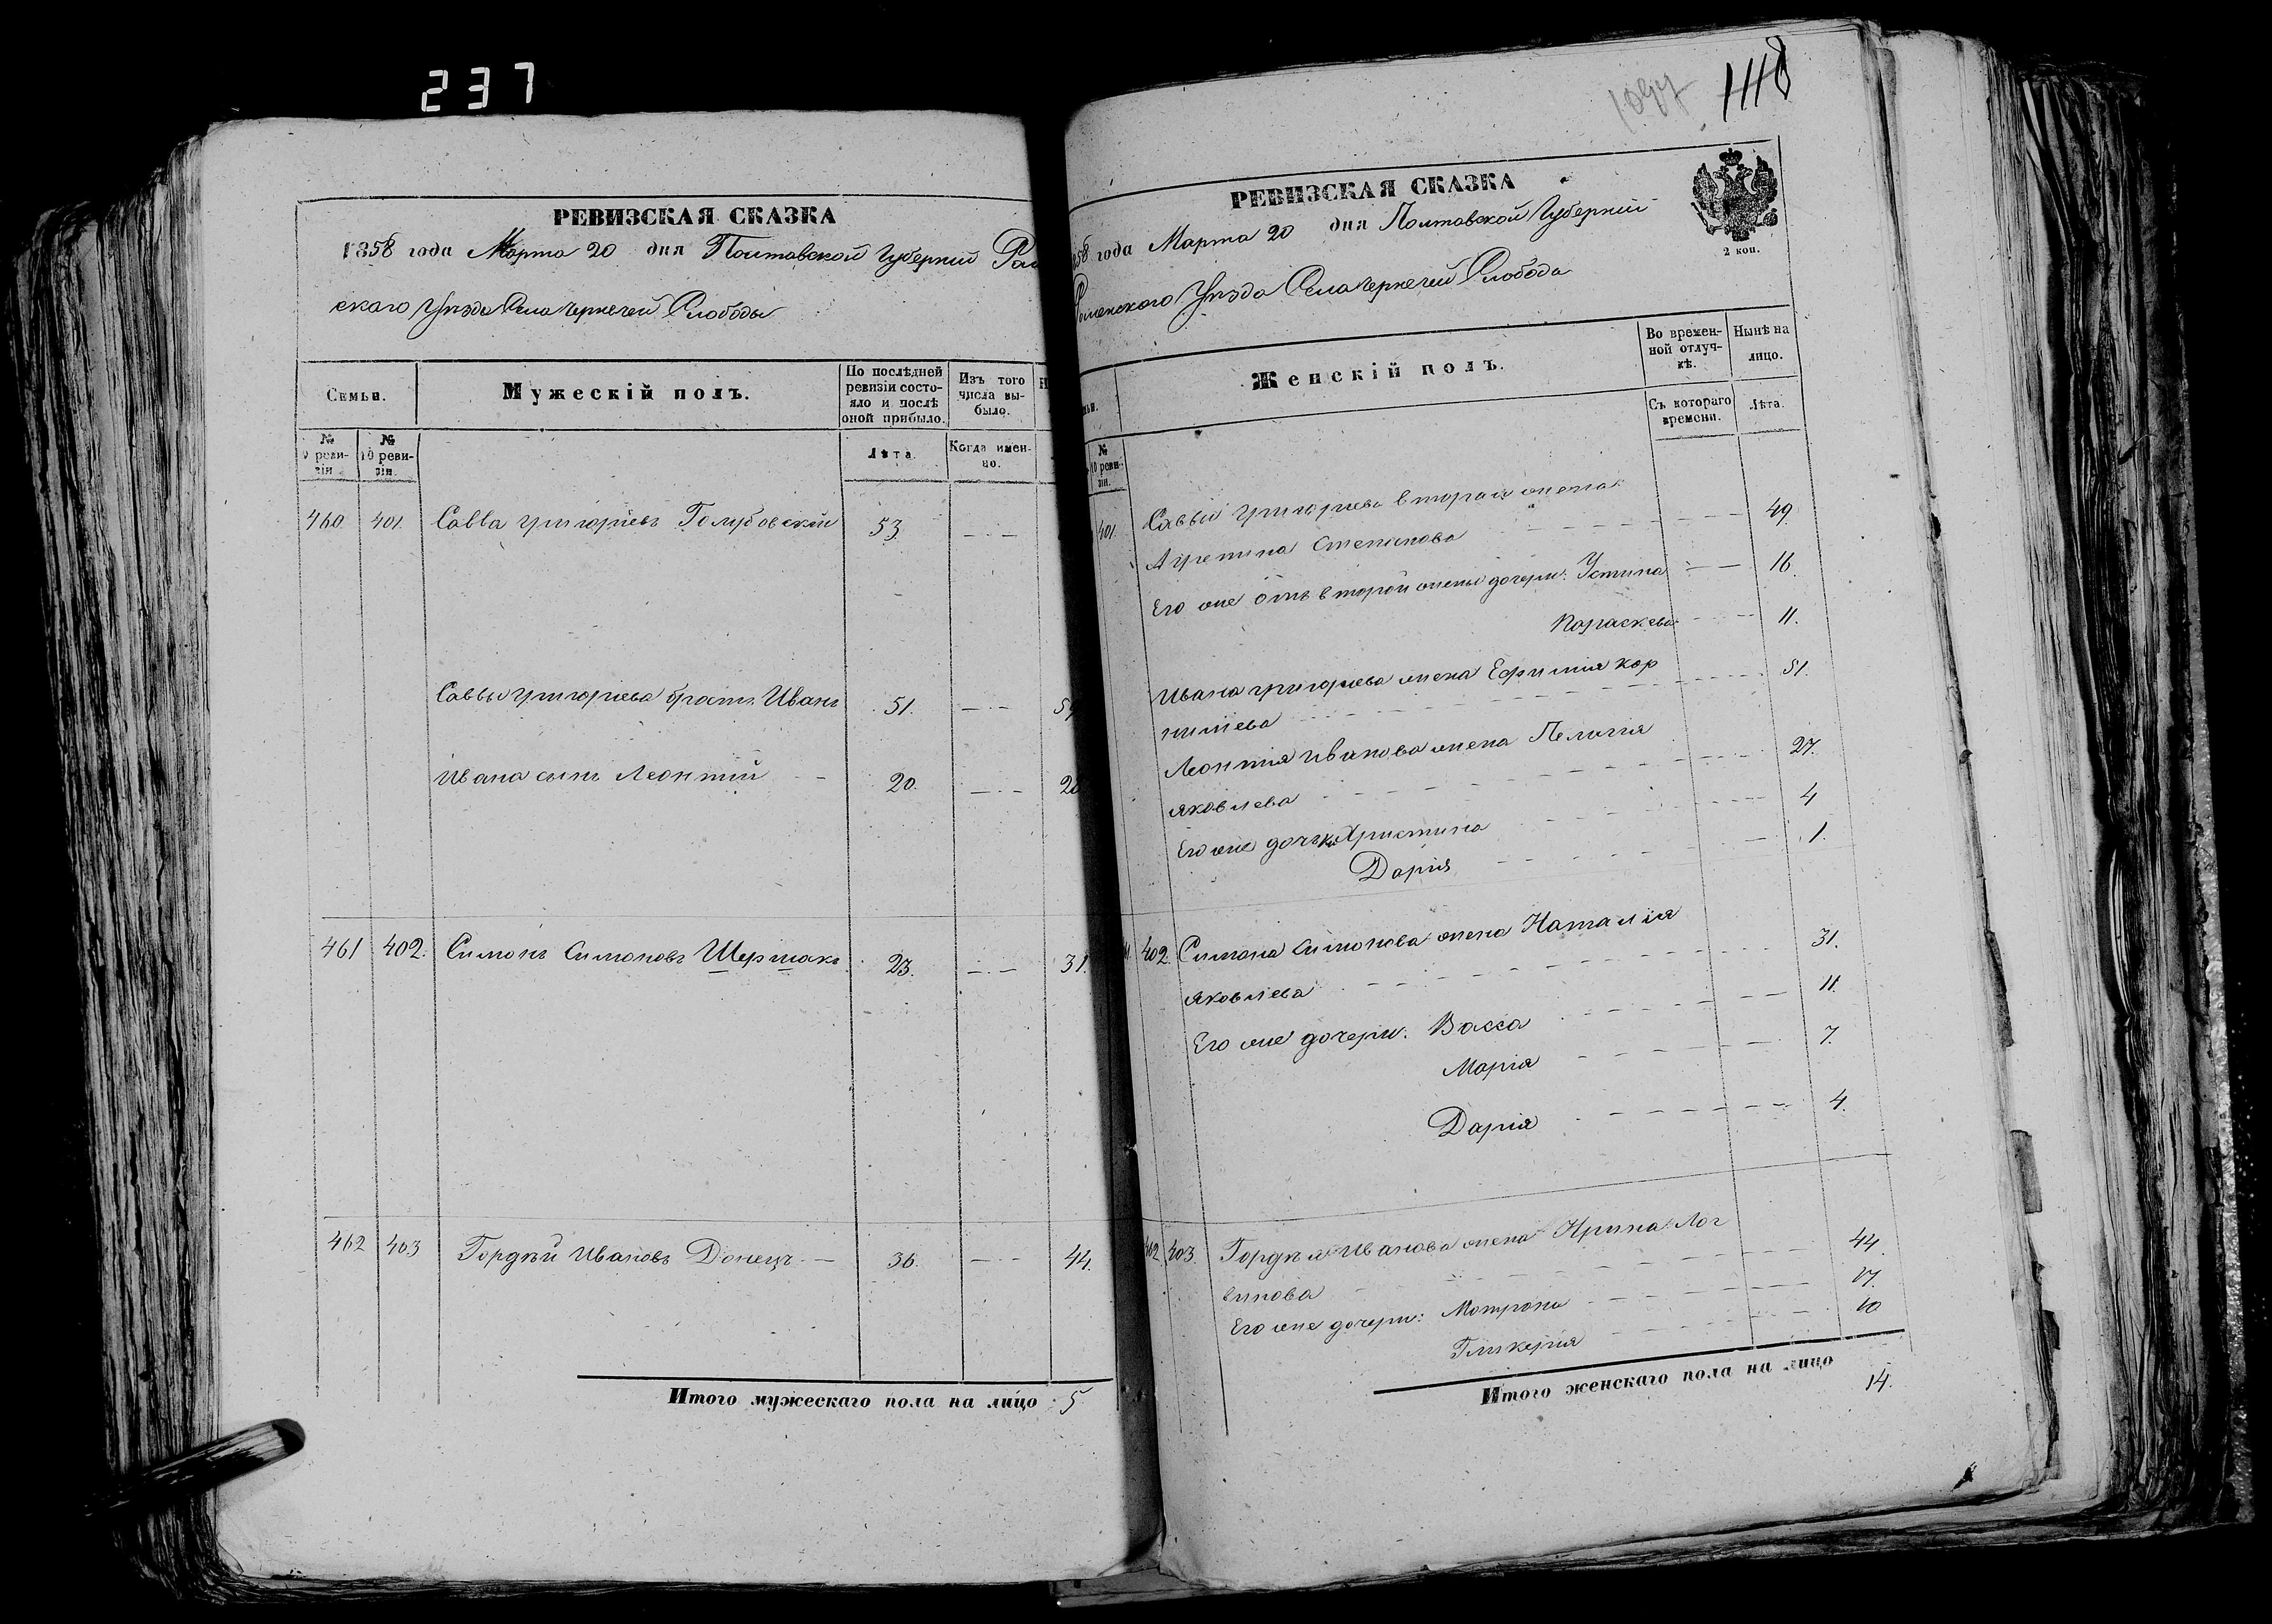 237
РЕВИЗСКАЯ СКАЗКА
1858 года Марта 20 дня Полтавской Губернии Ром
скаго Уѣзда Села Чернечей Слободы
Семьи.
Мужескій полъ.
По послѣдней
ревизіи состо-
яло и послѣ
оной прибыло.
Изъ того
числа вы-
было.
№
9 реви-
зіи
№
10 реви-
зіи.
Лѣта.
Когда имен-
но.
460. 401. Савва Григорьевъ Голубовскій 53.
Саввы Григорьева братъ Иванъ 51.
Ивана сынъ Леонтій 20.
461 402. Симонъ Симоновъ Шершакъ 23. 31.
462 403 Гордѣй Ивановъ Донецъ 36. 44.
Итого мужескаго пола на лицо 5
1118
РЕВИЗСКАЯ СКАЗКА
2 коп.
1858 года Марта 20 дня Полтавской Губерніи
Роменскаго Уѣзда Села Чернечей Слобода
Женскій полъ.
Во времен-
ной отлуч-
кѣ.
Нынѣ на
лицо.
Съ котораго
времени.
Лѣта.
№
10 реви-
зіи.
401. Саввы Григорьева вторая жена
Агрепина Степанова 49.
Его же отъ второй жены дочери: Устина 16.
Параскева 11.
Ивана Григорьева жена Ефимія Кор
нилиева 51.
Леонтія Иванова жена Пелагія
Яковлева 27.
Его же дочьки Христина 4
Дарія 1.
402. Симона Симонова жена Наталія
Яковлева 31.
Его же дочери: Васса 11.
Марія 7.
Дарія 4.
462 403. Гордѣя Иванова жена Ирина Лог
винова 44.
Его же дочери: Мотрона 17.
Гликерія 10
Итого женскаго пола на лицо 14.